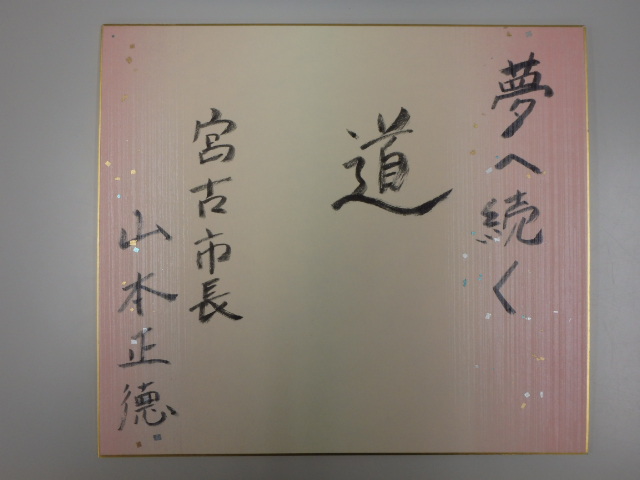 夢へ続く
道
宮古市長
山本正徳